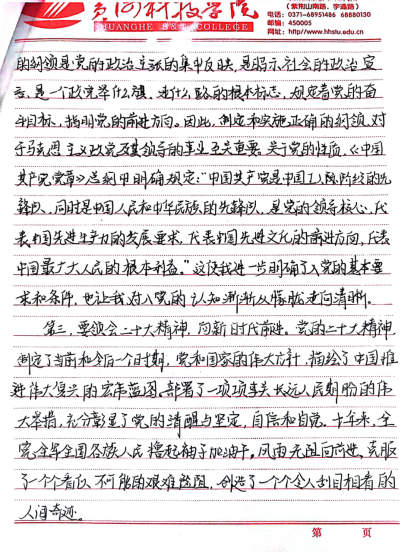 黄河科技学院
HUANGHE S&T COLLEGE
(紫荆山南路、宇鑫路)
电话: 0371-68951486 68880130
邮编: 450005
网址: http//www.hhstu.edu.cn
的纲领是党的政治主张的集中反映,是昭示社会的政治宣
言,是一个政党举什么旗、走什么路的根本标志,规定着党的奋
斗目标,指明党的前进方向。因此,制定和实施正确的纲领,对
于马克思主义政党及其领导的事业至关重要。关于党的性质,《中国
共产党党章》总纲中明确规定:“中国共产党是中国工人阶级的先
锋队,同时是中国人民和中华民族的先锋队,是党的领导核心,代
表中国先进生产力的发展要求,代表中国先进文化的前进方向,代表
中国最广大人民的根本利益。”这使我进一步明确了入党的基本要
求和条件,也让我对入党的认知渐渐从朦胧走向清晰。
第三,要领会二十大精神,向新时代前进。党的二十大精神
制定了当前和今后一个时期,党和国家的伟大方针,描绘了中国推
进伟大复兴的宏伟蓝图。部署了一项项事关长远人民期盼的伟
大举措,充分彰显了党的清醒与坚定,自信和自觉。十年来,全
党全军全国各族人民撸起袖子加油干。风雨无阻向前进,克服
了一个个看似不可能的艰难险阻,创造了一个个令人刮目相看的
人间奇迹。
第 页